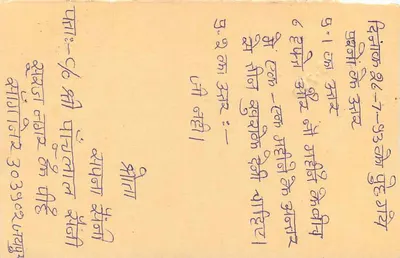 दिनांक 26-7-93 को पूछे गये
प्रश्नों के उत्तर
प्र॰ 1 का उत्तर
6 हफ्ता और नौ महीने के बीच
में एक-एक महीने के अन्तर
से तीन खुराकें देनी चाहिए।
प्र॰ 2 का उत्तर :—
जी नहीं।
श्रोता
सपना सैनी
पता:- C/o श्री पांचुलाल सैनी
सवाई नगर के पीछे
सांगानेर 303902 जयपुर